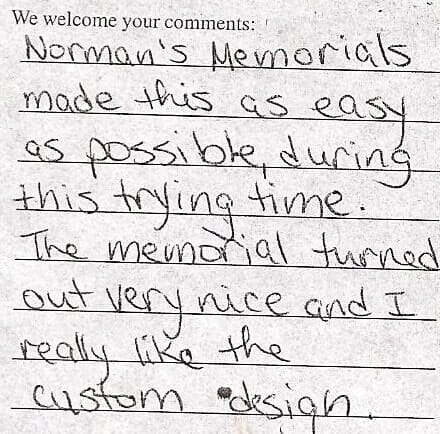 We welcome your comments:
Norman's Memorials
made this as easy
as possible, during
this trying time.
The memorial turned
out very nice and I
really like the
custom design.